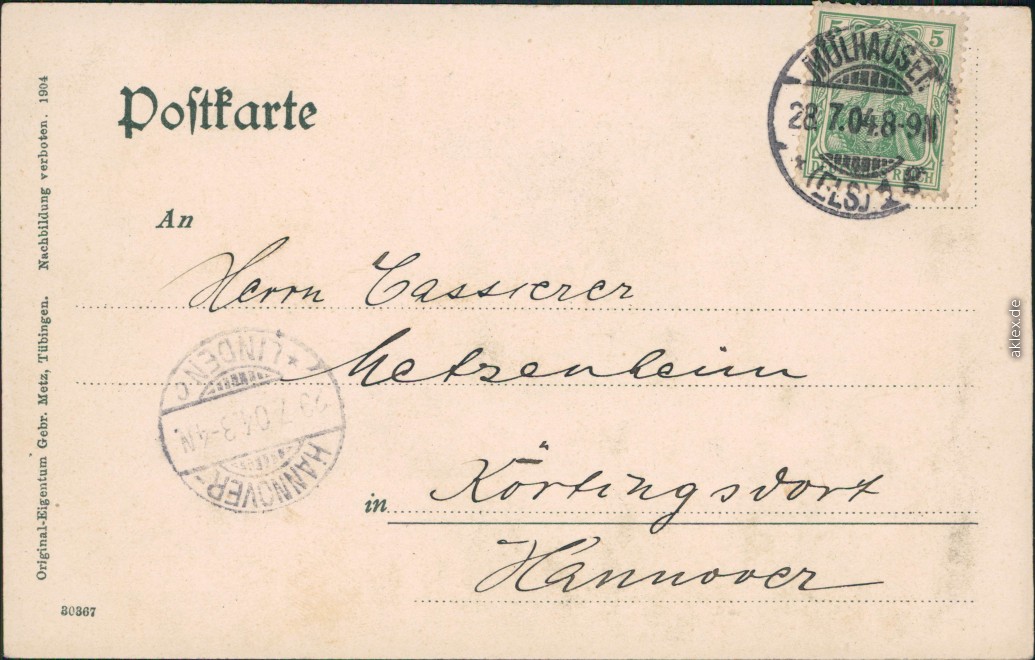 Postkarte
5 5
MÜLHAUSEN
28.7.04.8-9N
* (ELS.) 1
An
Herrn Cassierer
Metzenheim
in Körtingsdorf
Hannover
HANNOVER-
.7.04.3-4N
* LINDEN * c
Original-Eigentum Gebr. Metz, Tübingen. Nachbildung verboten. 1904
30367
aklex.de